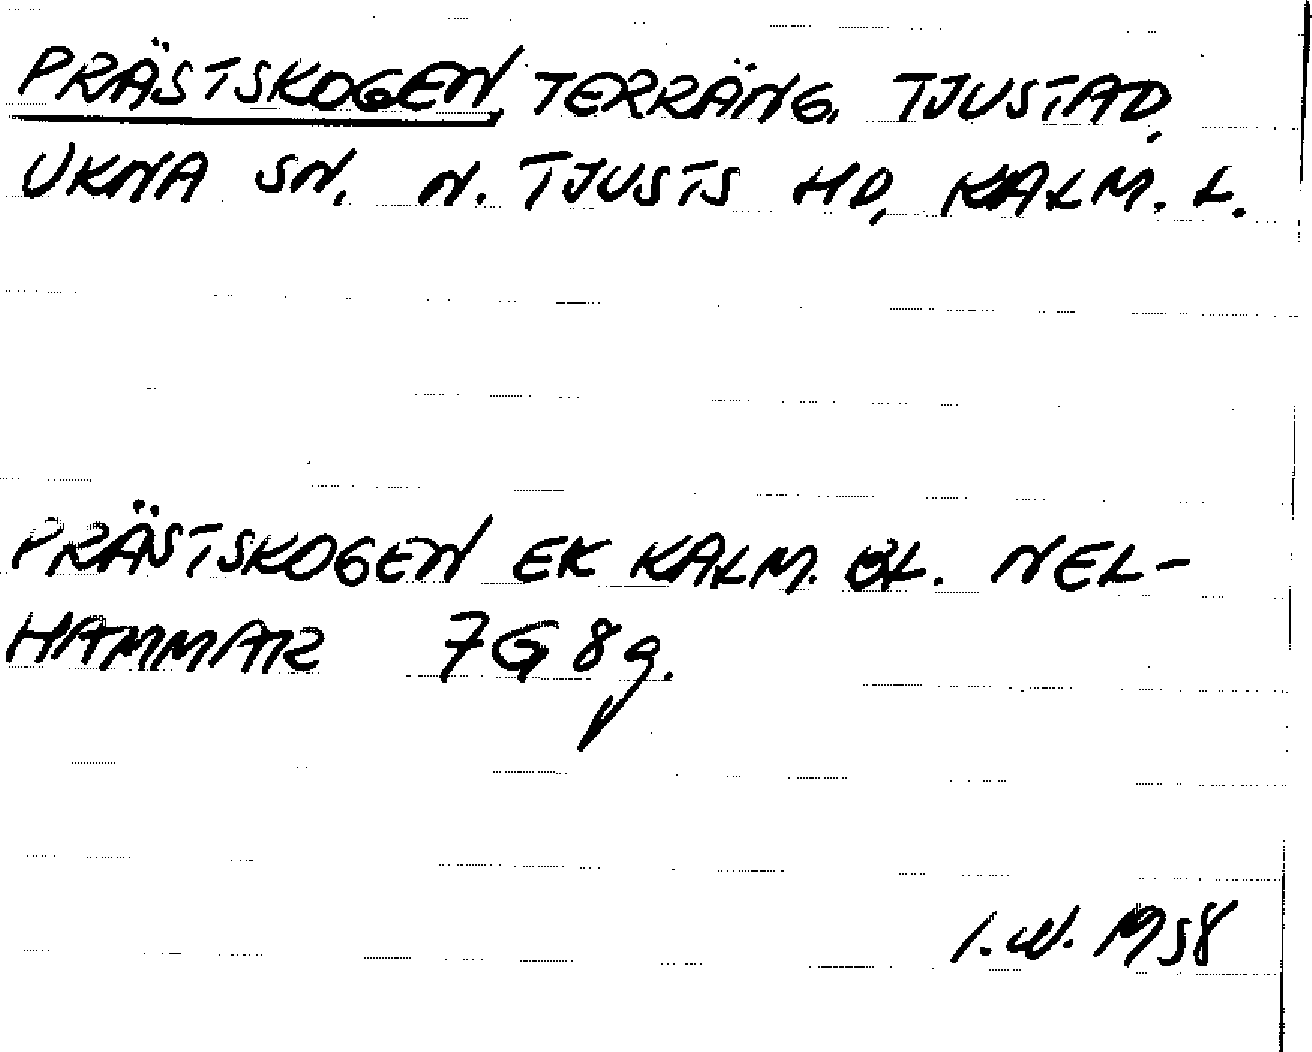 PRÄSTSKOGEN, TERRÄNG. TJUSTAD,
UKNA SN. N. TJUSTS HD, KALM. L.
PRÄSTSKOGEN EK KALM. BL. NEL-
HAMMAR 7G8g.
I.W. 1958